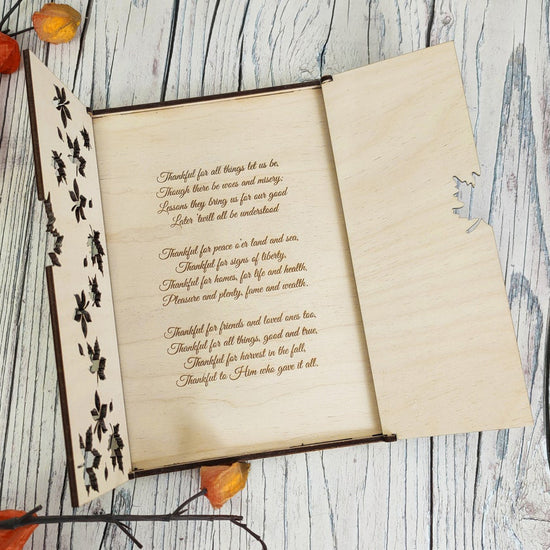 Thankful for all things let us be,
Though there be woes and misery;
Lessons they bring us for our good
Later 'twill all be understood
Thankful for peace o'er land and sea,
Thankful for signs of liberty,
Thankful for homes, for life and health,
Pleasure and plenty, fame and wealth.
Thankful for friends and loved ones too,
Thankful for all things, good and true,
Thankful for harvest in the fall,
Thankful to Him who gave it all.